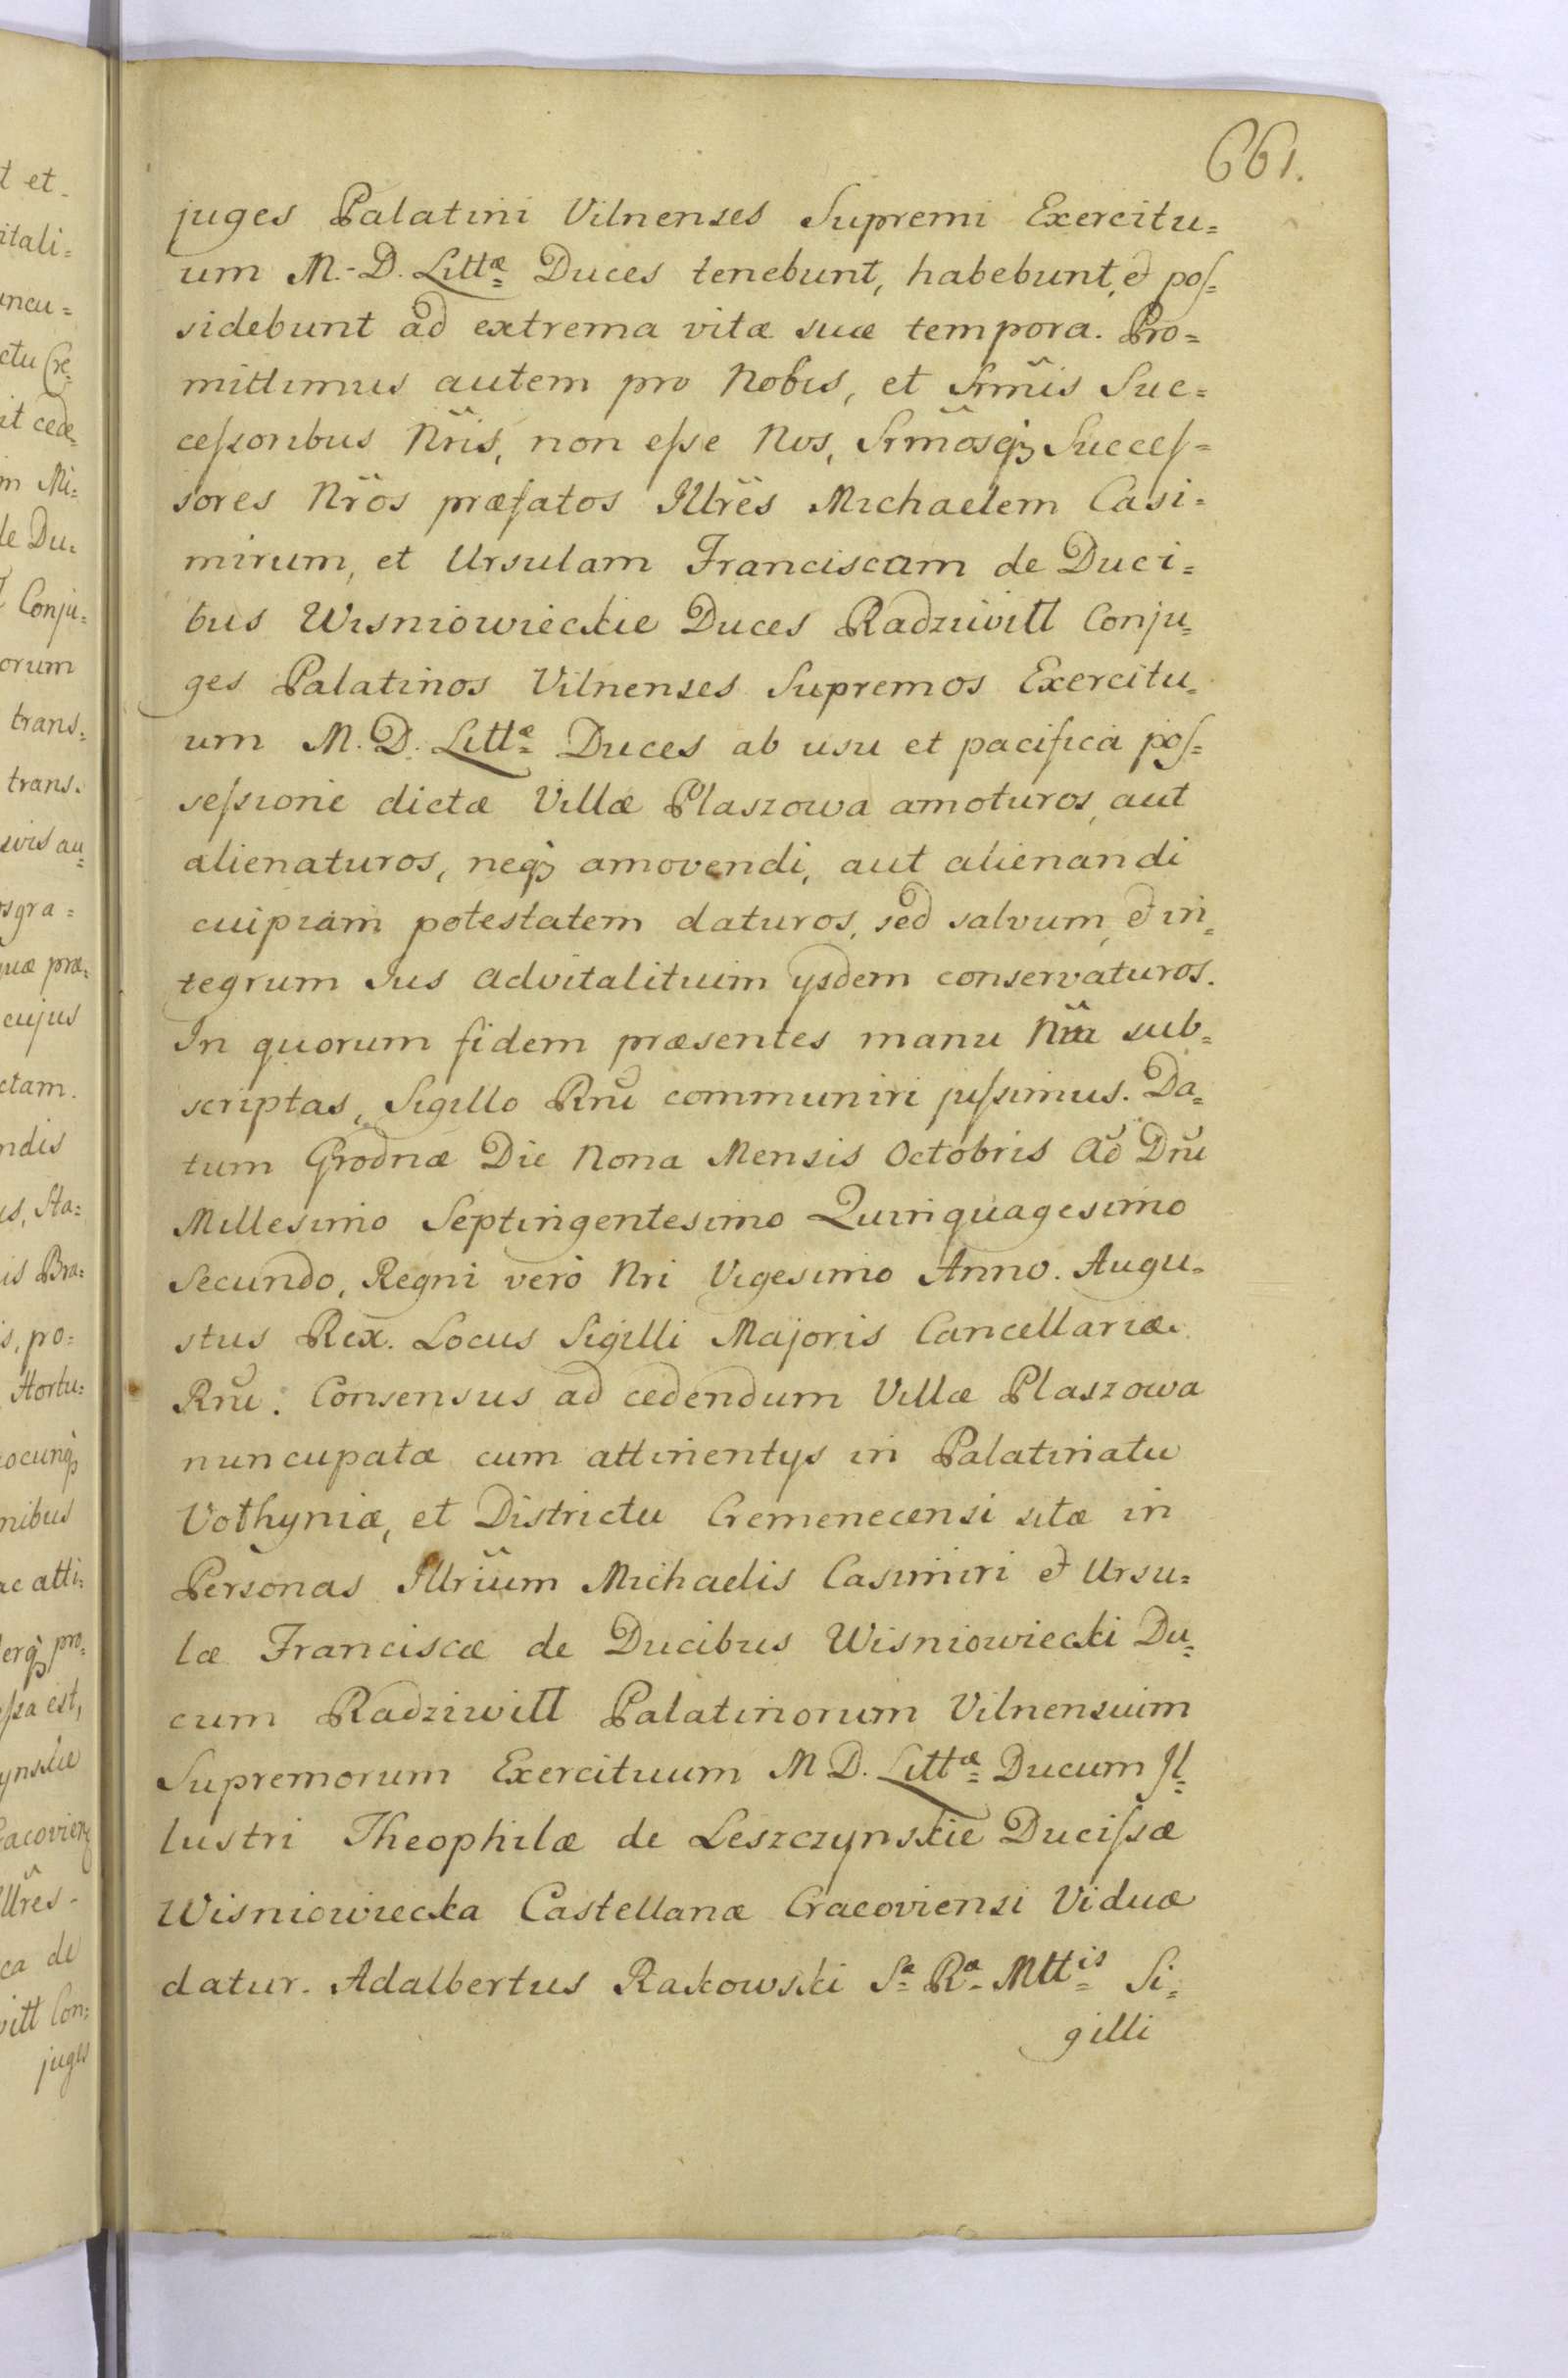 661.
juges Palatini Vilnenses Supremi Exercitu=
um M.-D. Littæ Duces tenebunt, habebunt, et pos=
sidebunt ad extrema vitæ suæ tempora. Pro=
mittimus autem pro Nobis, et Srm̃is Suc=
ceſsoribus Nr̃is, non eſse Nos, Srm̃osqꝫ Succeſ=
sores Nr̃os præfatos Illr̃es Michaelem Casi=
mirum, et Ursulam Franciscam de Duci=
bus Wisniowieckie Duces Radziwill Conju=
ges Palatinos Vilnenses Supremos Exercitu=
um M. D. Littæ Duces ab usu et pacifica poſ=
seſsione dictæ Villæ Plaszowa amoturos, aut
alienaturos, neqꝫ amovendi, aut alienandi
cuipiam potestatem daturos, sed salvum, et in=
tegrum Jus advitalitium ysdem conservaturos.
In quorum fidem præsentes manu Nr̃a sub=
scriptas, Sigillo Rnĩ communiri juſsimus. Da=
tum Grodnæ Die Nona Mensis Octobris Aõ Dnĩ
Millesimo Septingentesimo Quinquagesimo
Secundo, Regni verò Nri Vigesimo Anno. Augu=
stus Rex. Locus Sigilli Majoris Cancellariæ
Rnĩ. Consensus ad cedendum Villæ Plaszowa
nuncupatæ cum attinentys in Palatinatu
Volhyniæ, et Districtu Cremenecensi sitæ in
Personas Illrĩum Michaelis Casimiri et Ursu=
læ Franciscæ de Ducibus Wisniowiecki Du=
cum Radziwill Palatinorum Vilnensium
Supremorum Exercituum M D. Littæ Ducum Il=
lustri Theophilæ de Leszczynskie Duciſsæ
Wisniowiecka Castellanæ Cracoviensi Viduæ
datur. Adalbertus Rakowski Sæ Ræ Mttis Si=
gilli